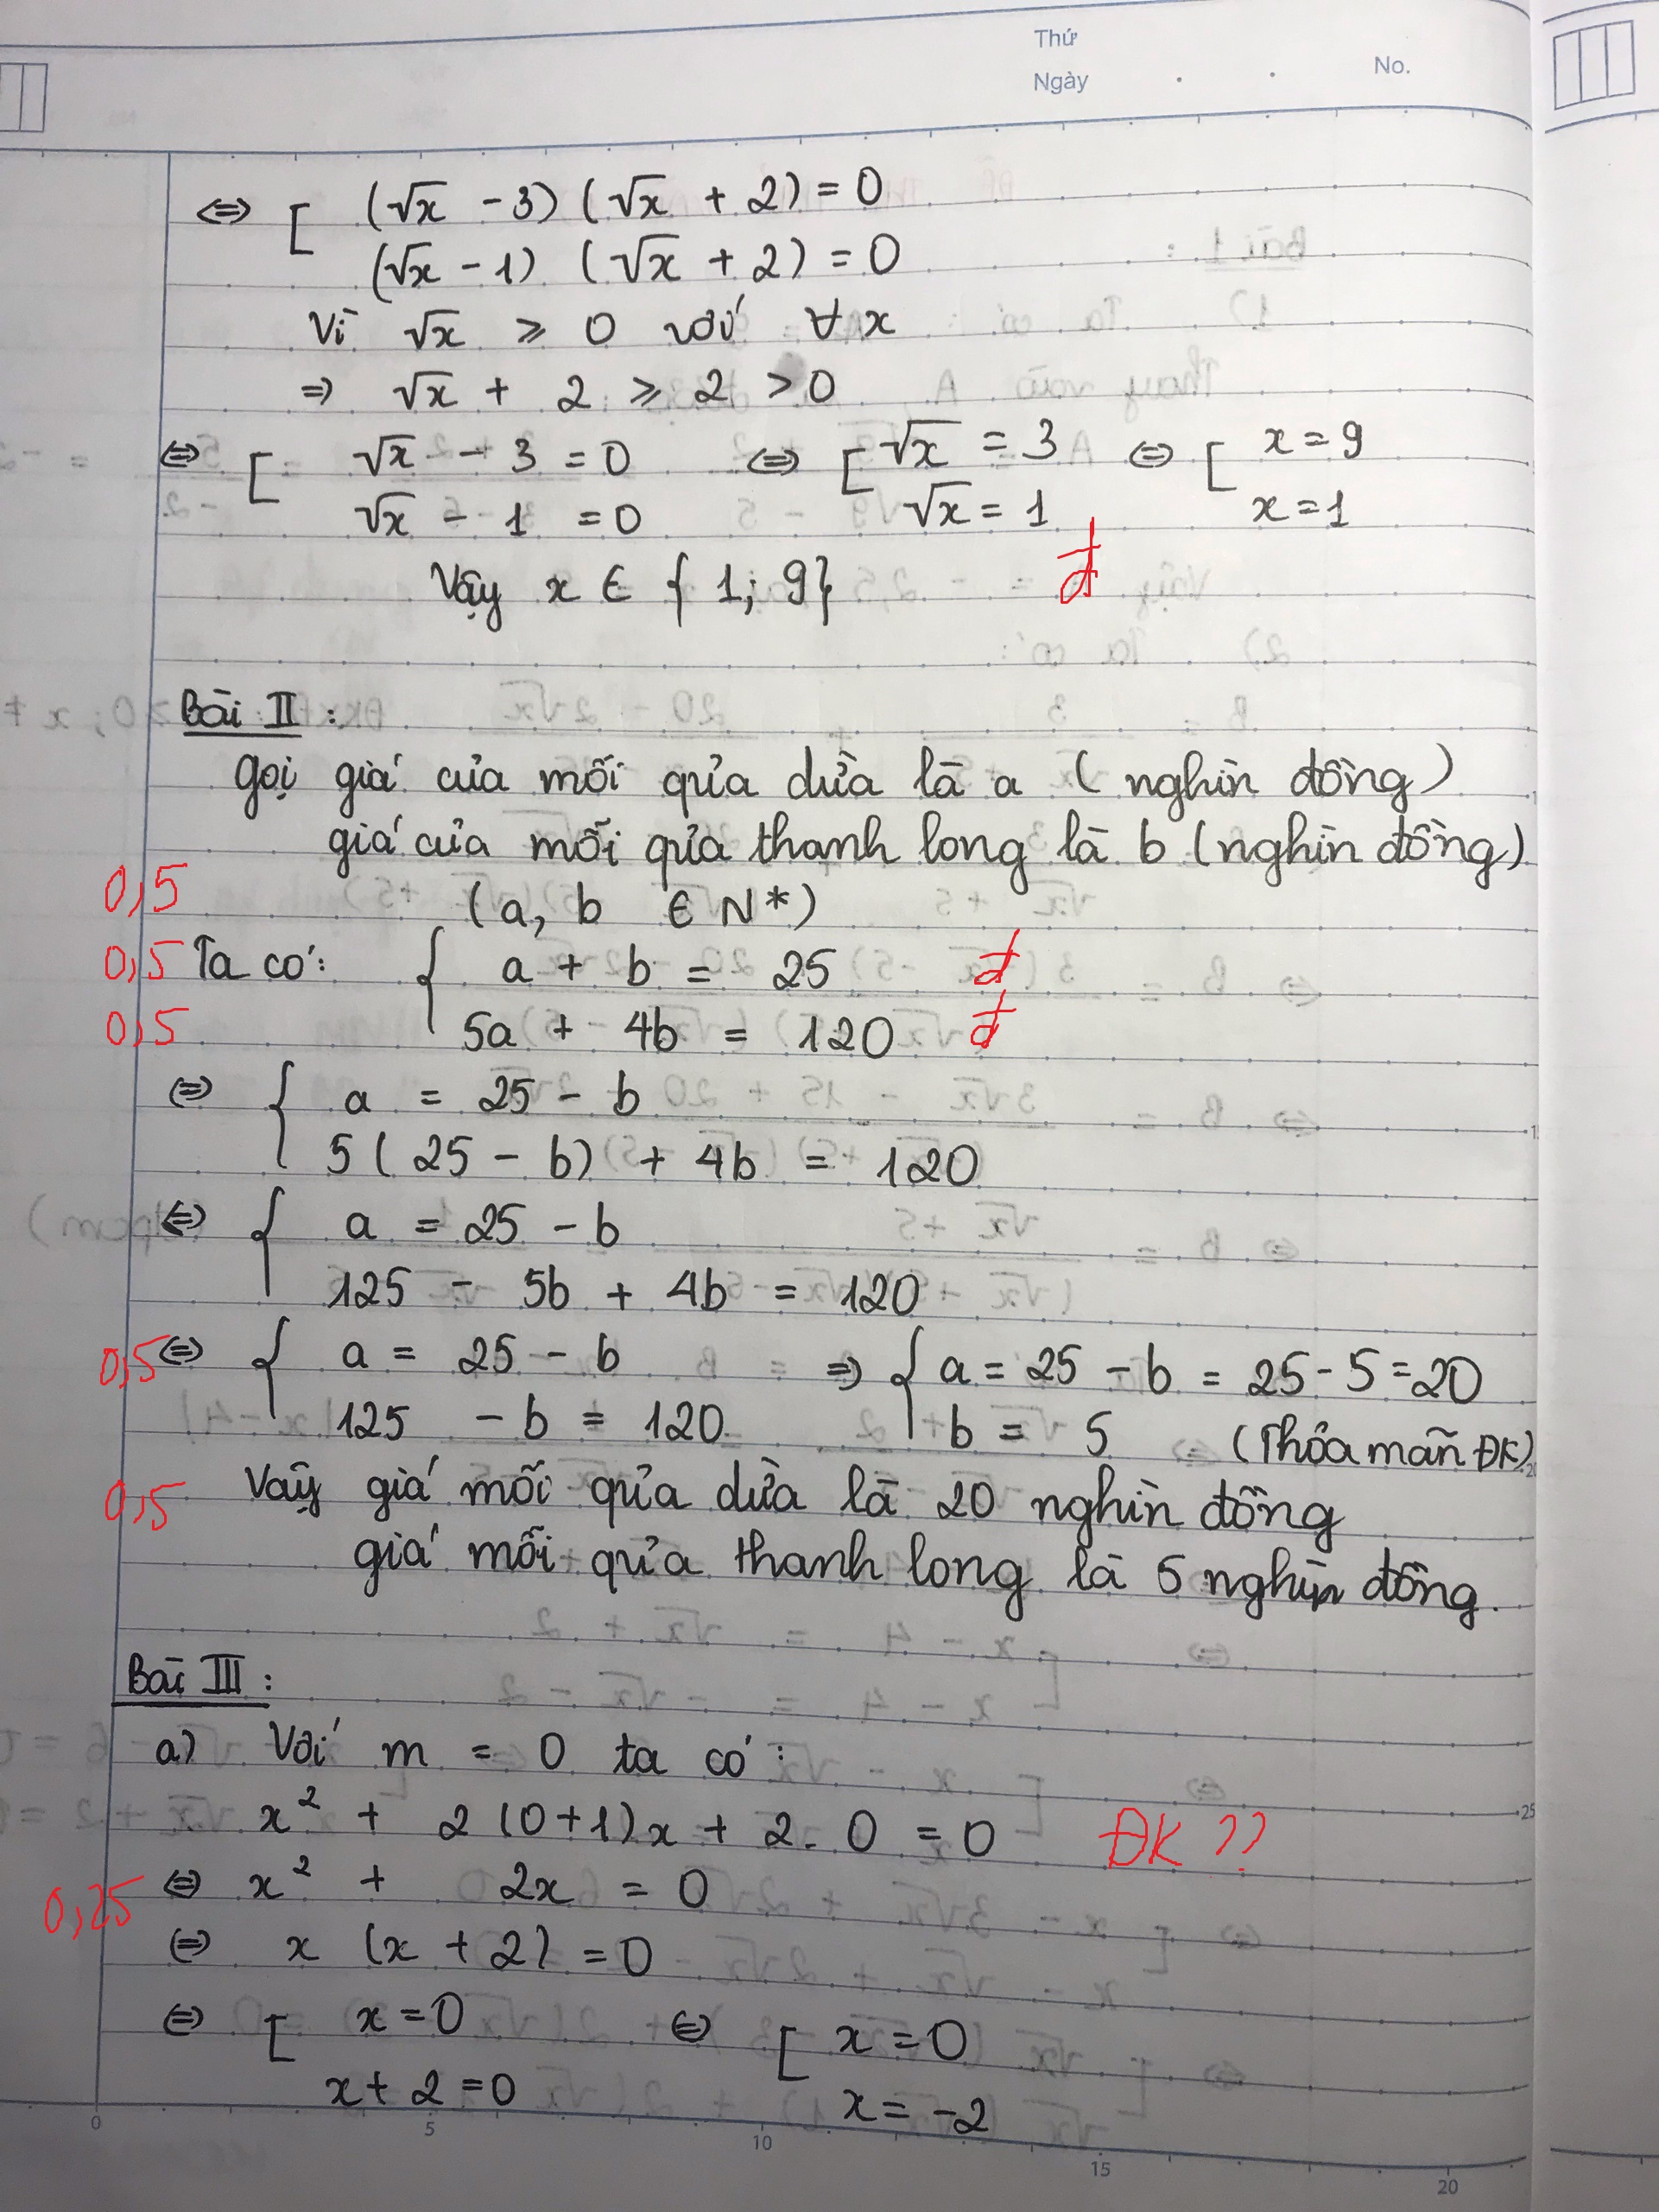 Thứ
Ngày . . No.
⇔ [ (√x - 3) (√x + 2) = 0
(√x - 1) (√x + 2) = 0
Vì √x ≥ 0 với ∀ x
⇒ √x + 2 ≥ 2 > 0
⇔ [ √x - 3 = 0 ⇔ [ √x = 3 ⇔ [ x = 9
√x - 1 = 0 √x = 1 x = 1
Vậy x ∈ { 1; 9} đ
Bài II :
Gọi giá của mỗi quả dừa là a ( nghìn đồng )
giá của mỗi quả thanh long là b (nghìn đồng)
0,5 (a, b ∈ N*)
0,5 Ta có: { a + b = 25 đ
0,5 5a + 4b = 120 đ
⇔ { a = 25 - b
5 ( 25 - b) + 4b = 120
⇔ { a = 25 - b
125 - 5b + 4b = 120
0,5 ⇔ { a = 25 - b ⇒ { a = 25 - b = 25 - 5 = 20
125 - b = 120 b = 5 (Thỏa mãn ĐK)
0,5 Vậy giá mỗi quả dừa là 20 nghìn đồng
giá mỗi quả thanh long là 5 nghìn đồng.
Bài III :
a) Với m = 0 ta có :
x² + 2 (0+1)x + 2. 0 = 0 ĐK ??
0,25 ⇔ x² + 2x = 0
⇔ x (x + 2) = 0
⇔ [ x = 0 ⇔ [ x = 0
x + 2 = 0 x = -2
0 5 10 15 20